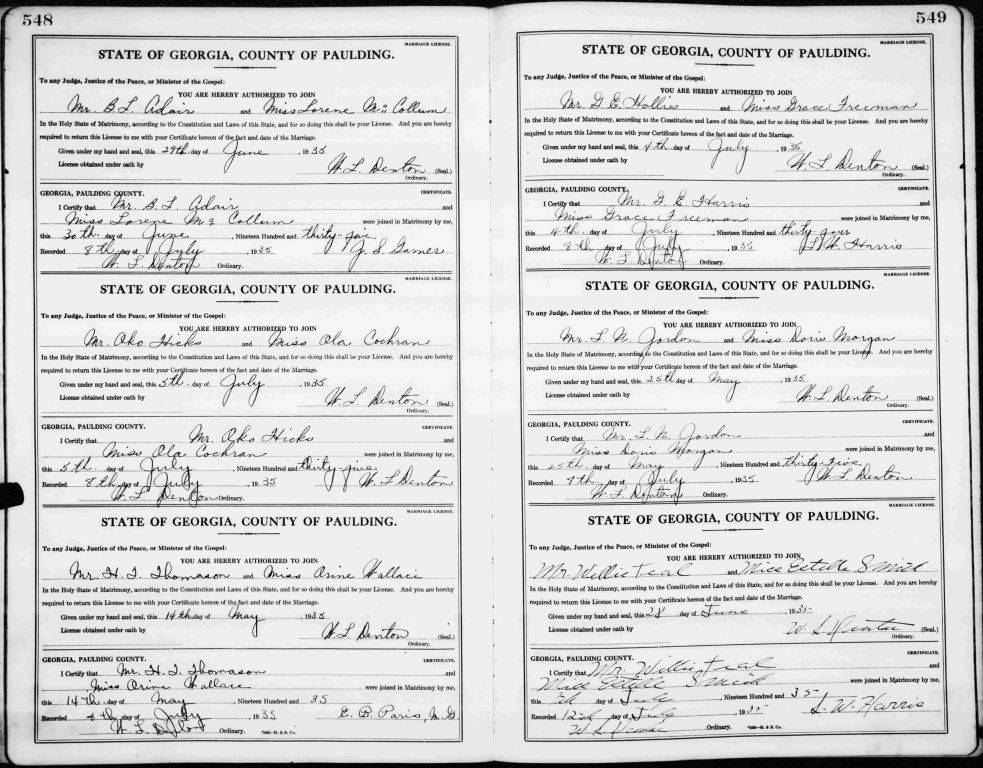 548
MARRIAGE LICENSE.
STATE OF GEORGIA, COUNTY OF PAULDING.
To any Judge, Justice of the Peace, or Minister of the Gospel:
YOU ARE HEREBY AUTHORIZED TO JOIN
Mr. B L Adair and Miss Lorene Mc Collum
In the Holy State of Matrimony, according to the Constitution and Laws of this State, and for so doing this shall be your License. And you are hereby
required to return this License to me with your Certificate hereon of the fact and date of the Marriage.
Given under my hand and seal, this 29th day of June, 1935
License obtained under oath by W. L. Denton (Seal.)
Ordinary.
GEORGIA, PAULDING COUNTY. CERTIFICATE.
I Certify that Mr. B. L Adair and
Miss Lorene Mc Collum were joined in Matrimony by me,
this 30th day of June, Nineteen Hundred and thirty-five
Recorded 8th day of July, 1935 J. S. Garner
W. L Denton Ordinary.
MARRIAGE LICENSE.
STATE OF GEORGIA, COUNTY OF PAULDING.
To any Judge, Justice of the Peace, or Minister of the Gospel:
YOU ARE HEREBY AUTHORIZED TO JOIN
Mr. Oko Hicks and Miss Ola Cochran
In the Holy State of Matrimony, according to the Constitution and Laws of this State, and for so doing this shall be your License. And you are hereby
required to return this License to me with your Certificate hereon of the fact and date of the Marriage.
Given under my hand and seal, this 5th. day of July, 1935
License obtained under oath by W. L. Denton (Seal.)
Ordinary.
GEORGIA, PAULDING COUNTY. CERTIFICATE.
I Certify that Mr. Oko Hicks and
Miss Ola Cochran were joined in Matrimony by me,
this 5th. day of July, Nineteen Hundred and thirty-five
Recorded 8th. day of July, 1935 W. L Denton
W. L Denton Ordinary.
MARRIAGE LICENSE.
STATE OF GEORGIA, COUNTY OF PAULDING.
To any Judge, Justice of the Peace, or Minister of the Gospel:
YOU ARE HEREBY AUTHORIZED TO JOIN
Mr. H. T. Thomason and Miss Orine Wallace
In the Holy State of Matrimony, according to the Constitution and Laws of this State, and for so doing this shall be your License. And you are hereby
required to return this License to me with your Certificate hereon of the fact and date of the Marriage.
Given under my hand and seal, this 14th day of May, 1935
License obtained under oath by W. L Denton (Seal.)
Ordinary.
GEORGIA, PAULDING COUNTY. CERTIFICATE.
I Certify that Mr. H. T. Thomason and
Miss Orine Wallace were joined in Matrimony by me,
this 14th day of May, Nineteen Hundred and 35
Recorded 8th day of July, 1935 E. B. Paris, M. G.
W. L Ordinary.
549
MARRIAGE LICENSE.
STATE OF GEORGIA, COUNTY OF PAULDING.
To any Judge, Justice of the Peace, or Minister of the Gospel:
YOU ARE HEREBY AUTHORIZED TO JOIN
Mr. D E. Hollis and Miss Grace Freeman
In the Holy State of Matrimony, according to the Constitution and Laws of this State, and for so doing this shall be your License. And you are hereby
required to return this License to me with your Certificate hereon of the fact and date of the Marriage.
Given under my hand and seal, this 4th. day of July, 1935
License obtained under oath by W. L Denton (Seal.)
Ordinary.
GEORGIA, PAULDING COUNTY. CERTIFICATE.
I Certify that Mr. E. Harris and
Miss Grace Freeman were joined in Matrimony by me,
this 4th. day of July, Nineteen Hundred and thirty
Recorded 8th. day of July, 1935 W. Harris
W. L Denton Ordinary.
MARRIAGE LICENSE.
STATE OF GEORGIA, COUNTY OF PAULDING.
To any Judge, Justice of the Peace, or Minister of the Gospel:
YOU ARE HEREBY AUTHORIZED TO JOIN
Mr. L. N. Gordon and Miss Doris Morgan
In the Holy State of Matrimony, according to the Constitution and Laws of this State, and for so doing this shall be your License. And you are hereby
required to return this License to me with your Certificate hereon of the fact and date of the Marriage.
Given under my hand and seal, this 25th day of May, 1935
License obtained under oath by W. L Denton (Seal.)
Ordinary.
GEORGIA, PAULDING COUNTY. CERTIFICATE.
I Certify that Mr. L. N. Gordon and
Miss Doris Morgan were joined in Matrimony by me,
this 25th. day of May, Nineteen Hundred and Thirty-Five
Recorded day of July, 1935 W. L Denton
W. L Denton Ordinary.
MARRIAGE LICENSE.
STATE OF GEORGIA, COUNTY OF PAULDING.
To any Judge, Justice of the Peace, or Minister of the Gospel:
YOU ARE HEREBY AUTHORIZED TO JOIN
Mr. Willie Teal and Miss Estelle Smith
In the Holy State of Matrimony, according to the Constitution and Laws of this State, and for so doing this shall be your License. And you are hereby
required to return this License to me with your Certificate hereon of the fact and date of the Marriage.
Given under my hand and seal, this 28 day of June, 1935
License obtained under oath by W L Denton (Seal.)
Ordinary.
GEORGIA, PAULDING COUNTY. CERTIFICATE.
I Certify that Mr. Willie Teal and
Miss Estelle Smith were joined in Matrimony by me,
this day of July, Nineteen Hundred and 35
Recorded 12th day of July, 1935 L. W. Harris
W L Denton Ordinary.